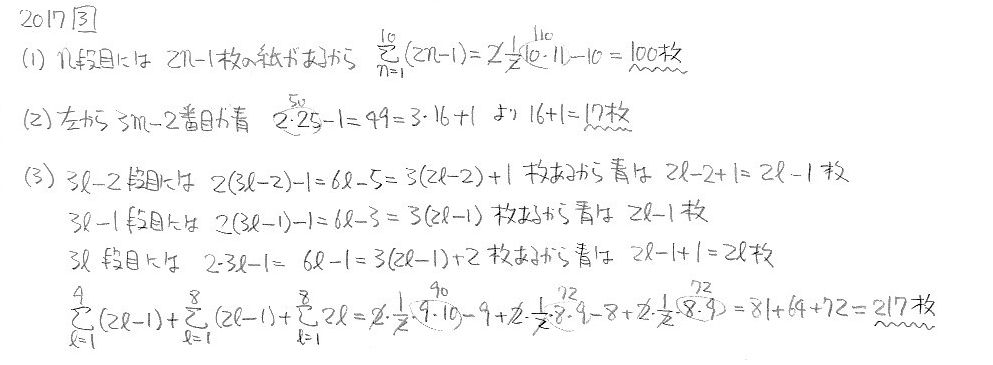 2017 3
(1) n段目には 2n-1枚の紙があるから \sum_{n=1}^{10}(2n-1) = 2\frac{1}{2}10・11-10 = 100枚 110
(2) 左から 3m-2番目が青 2・25-1=49=3・16+1 より 16+1=17枚 50
(3) 3l-2段目には 2(3l-2)-1=6l-5=3(2l-2)+1 枚あるから 青は 2l-2+1=2l-1枚
3l-1段目には 2(3l-1)-1=6l-3=3(2l-1) 枚あるから青は 2l-1枚
3l 段目には 2・3l-1= 6l-1=3(2l-1)+2 枚あるから青は 2l-1+1=2l枚
\sum_{l=1}^{9}(2l-1)+\sum_{l=1}^{8}(2l-1)+\sum_{l=1}^{8}2l=2・\frac{1}{2}・9・10-9+2・\frac{1}{2}・8・9-8+2・\frac{1}{2}・8・9=81+64+72=217枚 90 72 72